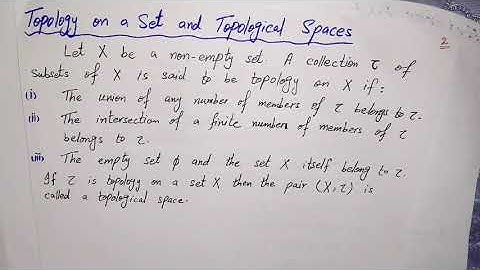 Topology on a Set and Topological Spaces
2
Let X be a non-empty set. A collection τ of
subsets of X is said to be topology on X if:
(i) The union of any number of members of τ belongs to τ.
(ii) The intersection of a finite number of members of τ
belongs to τ.
(iii) The empty set φ and the set X itself belong to τ.
If τ is topology on a set X, then the pair (X, τ) is
called a topological space.